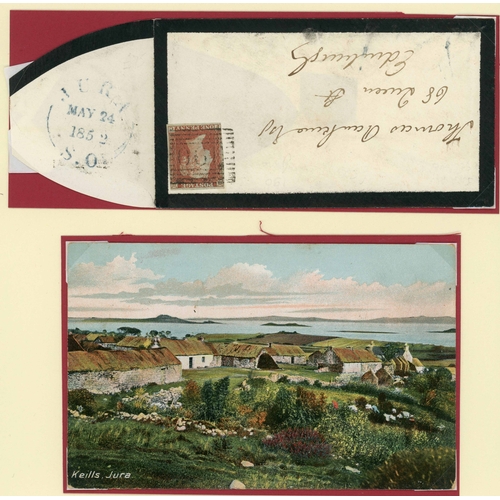 JURA
MAY 24
1852
S.O
POSTAGE
ONE PENNY
Thomas
68 Queen St
Edinburgh
Keills, Jura